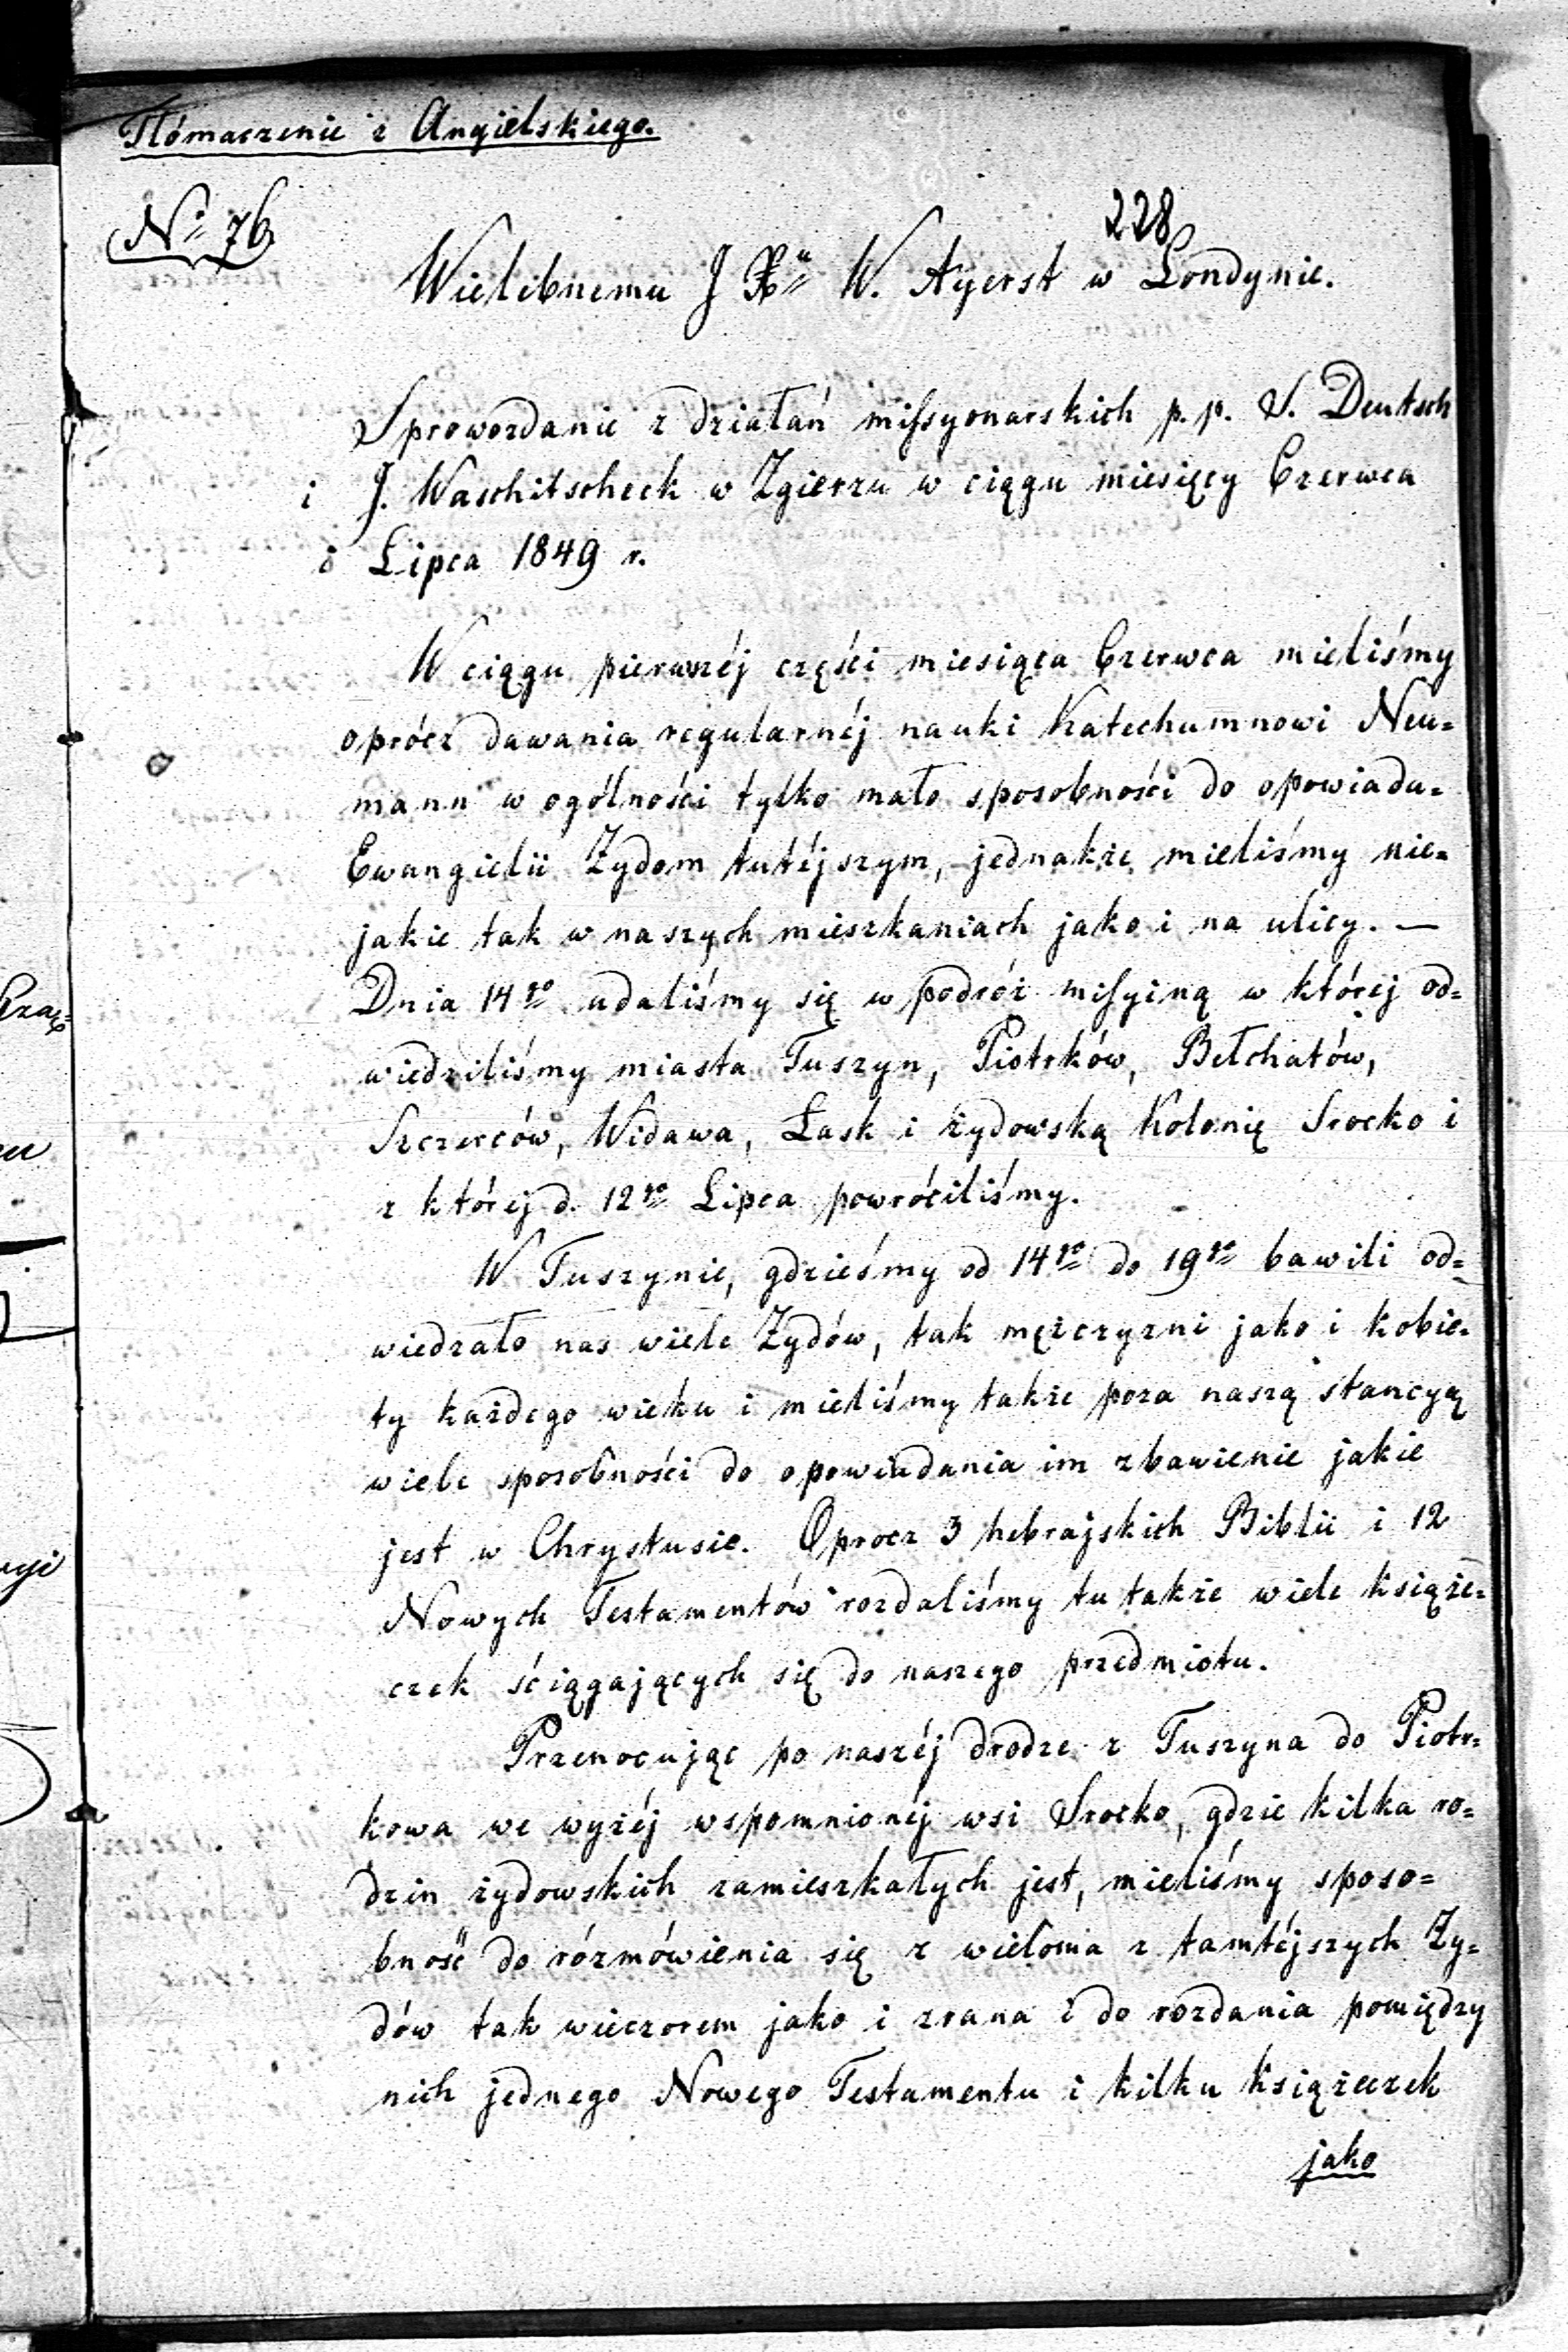 Tłómaczenie z Angielskiego.
Nº 76
228
Wielebnemu J Xu W. Ayerst w Londynie.
Sprawozdanie z działań missyonarskich p.p. S. Deutsch
i J. Waschitscheck w Zgierzu w ciągu miesięcy Czerwca
i Lipca 1849 r.
W ciągu pierwszéj części miesiąca Czerwca mieliśmy
oprócz dawania regularnéj nauki Katechumnowi Neu=
mann w ogólności tylko mało sposobności do opowiada=
Ewangielii Żydom tutéjszym, jednakże mieliśmy nie=
jakie tak w naszych mieszkaniach jako i na ulicy. —
Dnia 14go udaliśmy się w podróż missyiną w której od=
wiedziliśmy miasta Tuszyn, Piotrków, Bełchatów,
Szczerców, Widawa, Łask i żydowską Kolonię Srocko i
z której d. 12go Lipca powróciliśmy.
W Tuszynie, gdzieśmy od 14go do 19go bawili od=
wiedzało nas wiele Żydów, tak mężczyzni jako i kobie=
ty każdego wieku i mieliśmy także poza naszą stancyą
wiele sposobności do opowiadania im zbawienie jakie
jest w Chrystusie. Oprocz 3 hebrajskich Biblii i 12
Nowych Testamentów rozdaliśmy tu także wiele książe=
czek ściągających się do naszego przedmiotu.
Przenocując po naszéj drodze z Tuszyna do Piotr=
kowa we wyżéj wspomnionéj wsi Srocko, gdzie kilka ro=
dzin żydowskich zamieszkałych jest, mieliśmy sposo=
bność do rózmówienia się z wieloma z tamtéjszych Ży=
dów tak wieczorem jako i zrana i do rozdania pomiędzy
nich jednego Nowego Testamentu i kilku książeczek
jako